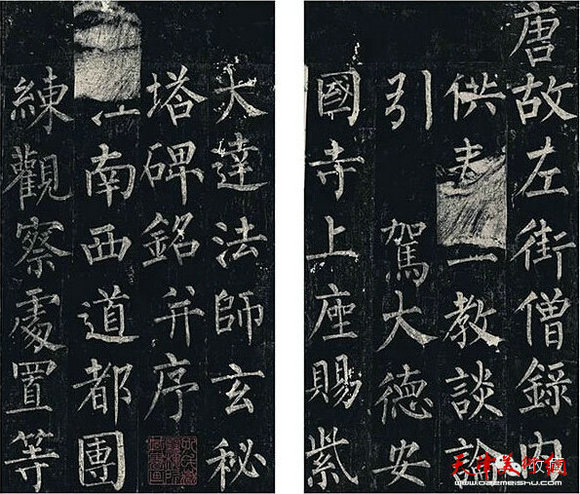 唐故左街僧錄内
供一教談論
引駕大德安
國寺上座賜紫
大達法師玄秘
塔碑銘并序
江南西道都團
練觀察處置等
天津美術網